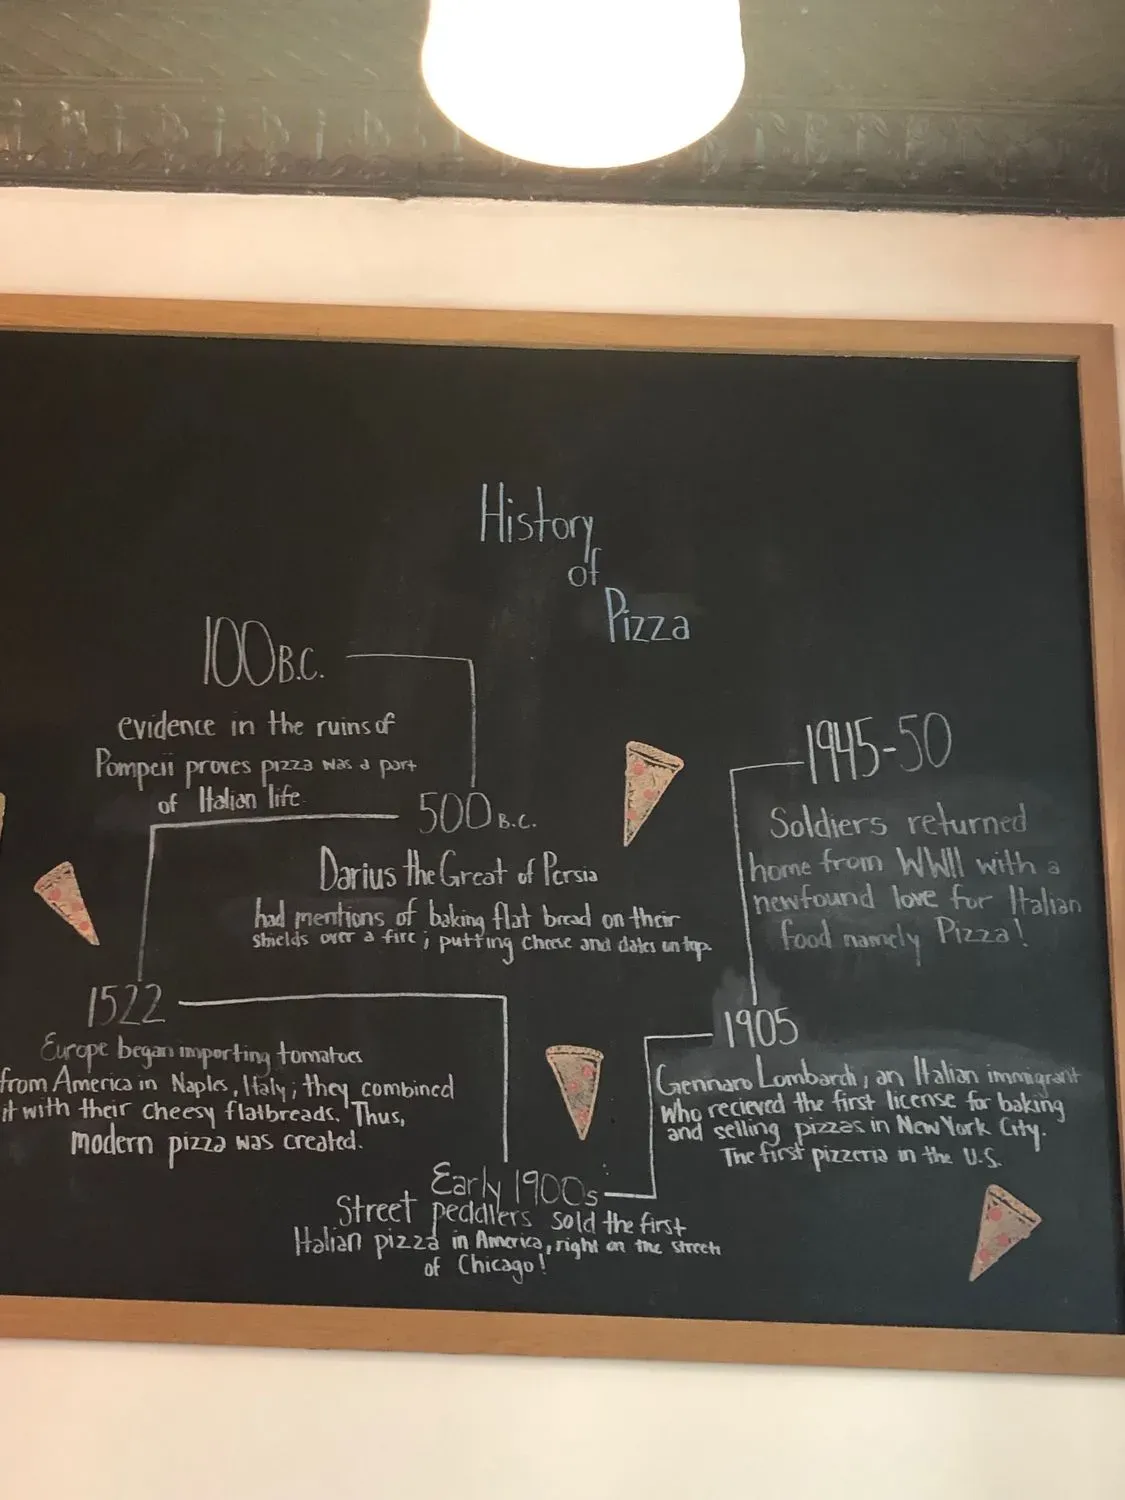 History
of
Pizza
100 B.C.
evidence in the ruins of
Pompeii proves pizza was a part
of Italian life
500 B.C.
Darius the Great of Persia
had mentions of baking flat bread on their
shields over a fire; putting cheese and dates on top.
1522
Europe began importing tomatoes
from America in Naples, Italy; they combined
it with their cheesy flatbreads. Thus,
modern pizza was created.
Early 1900s
Street peddlers sold the first
Italian pizza in America, right on the streets
of Chicago!
1905
Gennaro Lombardi, an Italian immigrant
who recieved the first license for baking
and selling pizzas in New York City.
The first pizzeria in the U.S.
1945-50
Soldiers returned
home from WWII with a
newfound love for Italian
food namely Pizza!